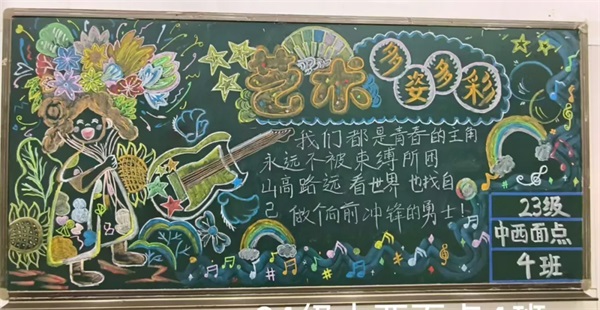 艺术
多姿多彩
我们都是青春的主角
永远不被束缚所困
山高路远看世界也找自
己 做个向前冲锋的勇士!
23级
中西面点
4班